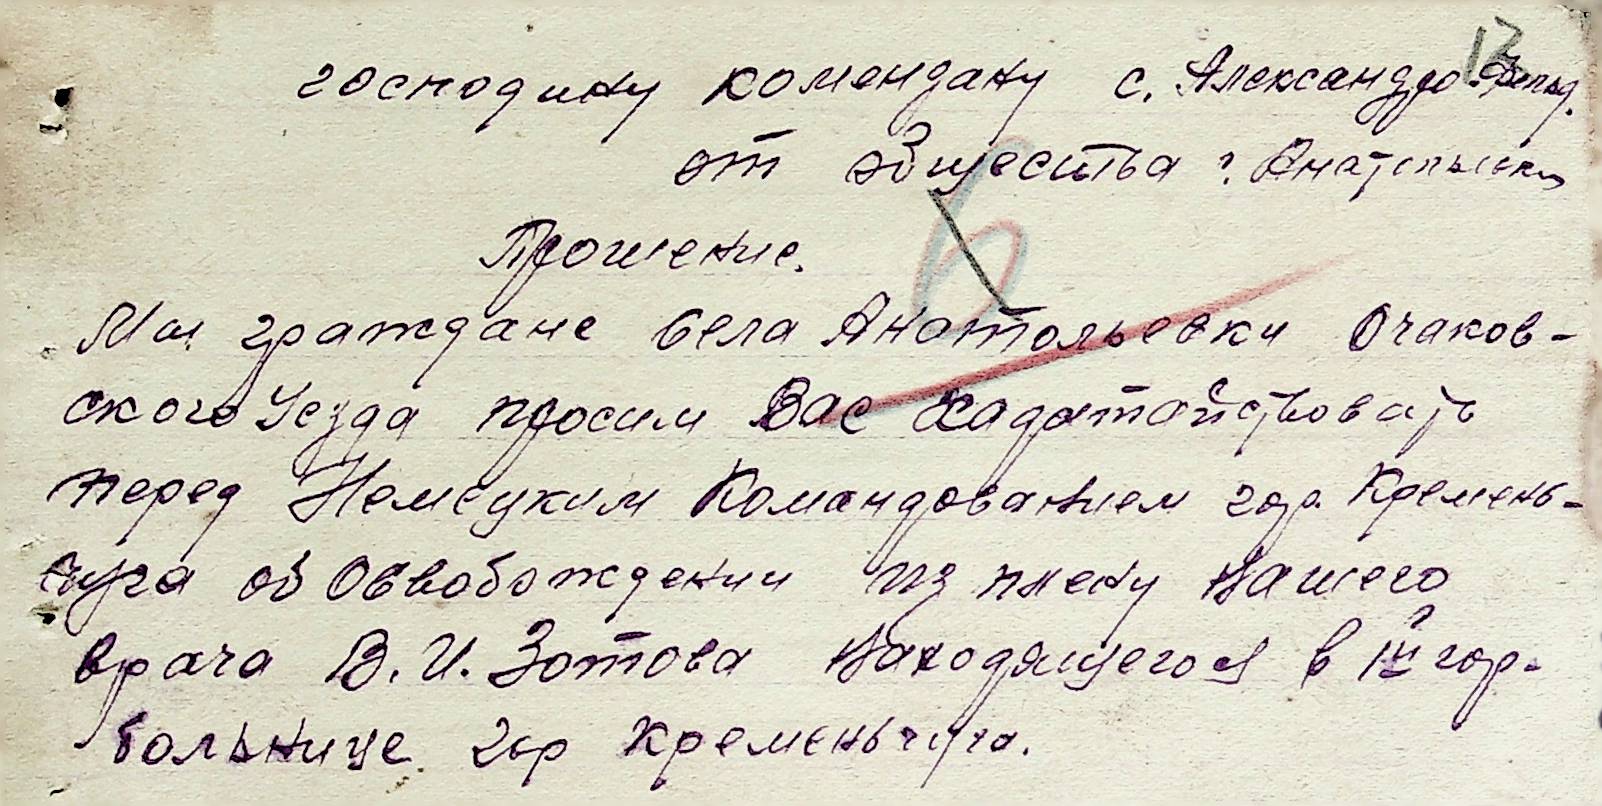 13
господину комендану с. Александро
от общества с. Анатольевки
Прошение.
Мы граждане села Анатольевки Очаков-
ского Уезда просим Вас хадатайствовать
перед Немецким Командованием гор. Кремень-
чуга об Освобождении из плену Нашего
врача В. И. Зотова Находящегося в III гор.
больнице гор Кременьчуга.